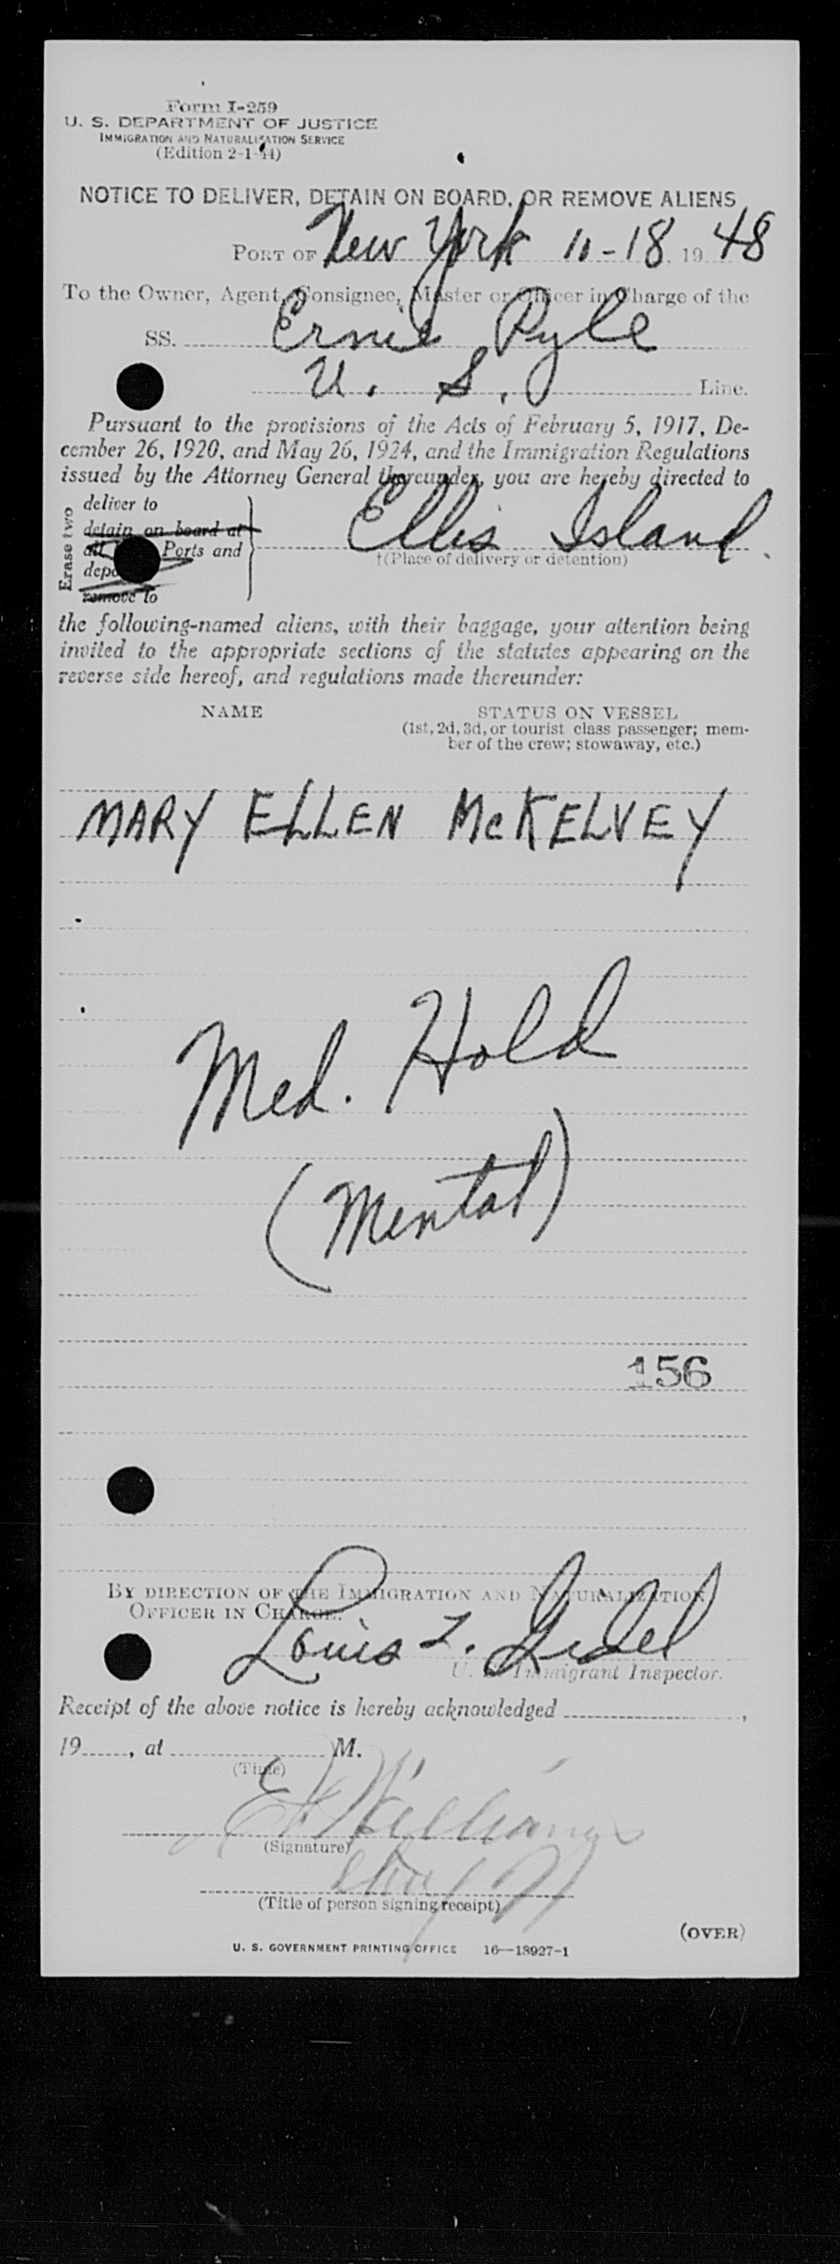 Form I-259
U. S. DEPARTMENT OF JUSTICE
IMMIGRATION AND NATURALIZATION SERVICE
(Edition 2-1-44)
NOTICE TO DELIVER, DETAIN ON BOARD, OR REMOVE ALIENS
PORT OF New York 11-18, 19 48
To the Owner, Agent, Consignee, Master or Officer in Charge of the
SS. Ernie Pyle
U. S. Line.
Pursuant to the provisions of the Acts of February 5, 1917, De-
cember 26, 1920, and May 26, 1924, and the Immigration Regulations
issued by the Attorney General thereunder, you are hereby directed to
Erase two
deliver to
detain on board at
all Ports and
remove to
Ellis Island.
†(Place of delivery or detention)
the following-named aliens, with their baggage, your attention being
invited to the appropriate sections of the statutes appearing on the
reverse side hereof, and regulations made thereunder:
NAME STATUS ON VESSEL
(1st, 2d, 3d, or tourist class passenger; mem-
ber of the crew; stowaway, etc.)
MARY ELLEN McKELVEY
Med. Hold
(Mental)
156
BY DIRECTION OF THE IMMIGRATION AND NATURALIZATION
OFFICER IN CHARGE.
Louis L. Gidel
U. S. Immigrant Inspector.
Receipt of the above notice is hereby acknowledged ,
19 , at M.
(Time)
Williams
(Signature)
(Title of person signing receipt)
(OVER)
U. S. GOVERNMENT PRINTING OFFICE 16—18927-1